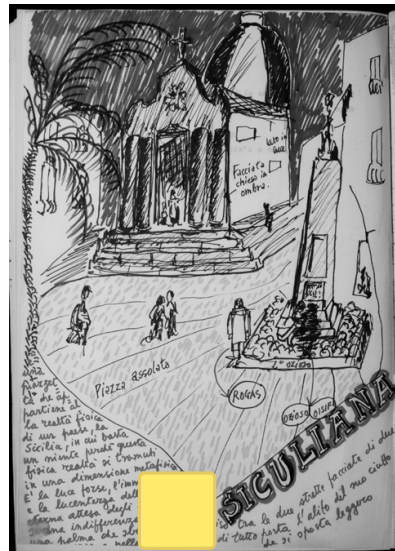 lato in
luce
Facciata
chiesa in
ombra.
Piazza assolata
ROGAS
L'OZIOSO
OZIOSO
SICULIANA
una
piazzet
ta che ap
partiene al
la realtà fisica
di un paese, la
Sicilia, in cui basta
un niente perché questa
fisica realtà si tramuti
in una dimensione metafisica
E' la luce forse, l'imm
e la lucentezza dell
eterna attesa degli
indifferenza
una salma che
e nella
tra le due strette facciate di due
di tutto posta l'alito del suo
che si sposta leggero